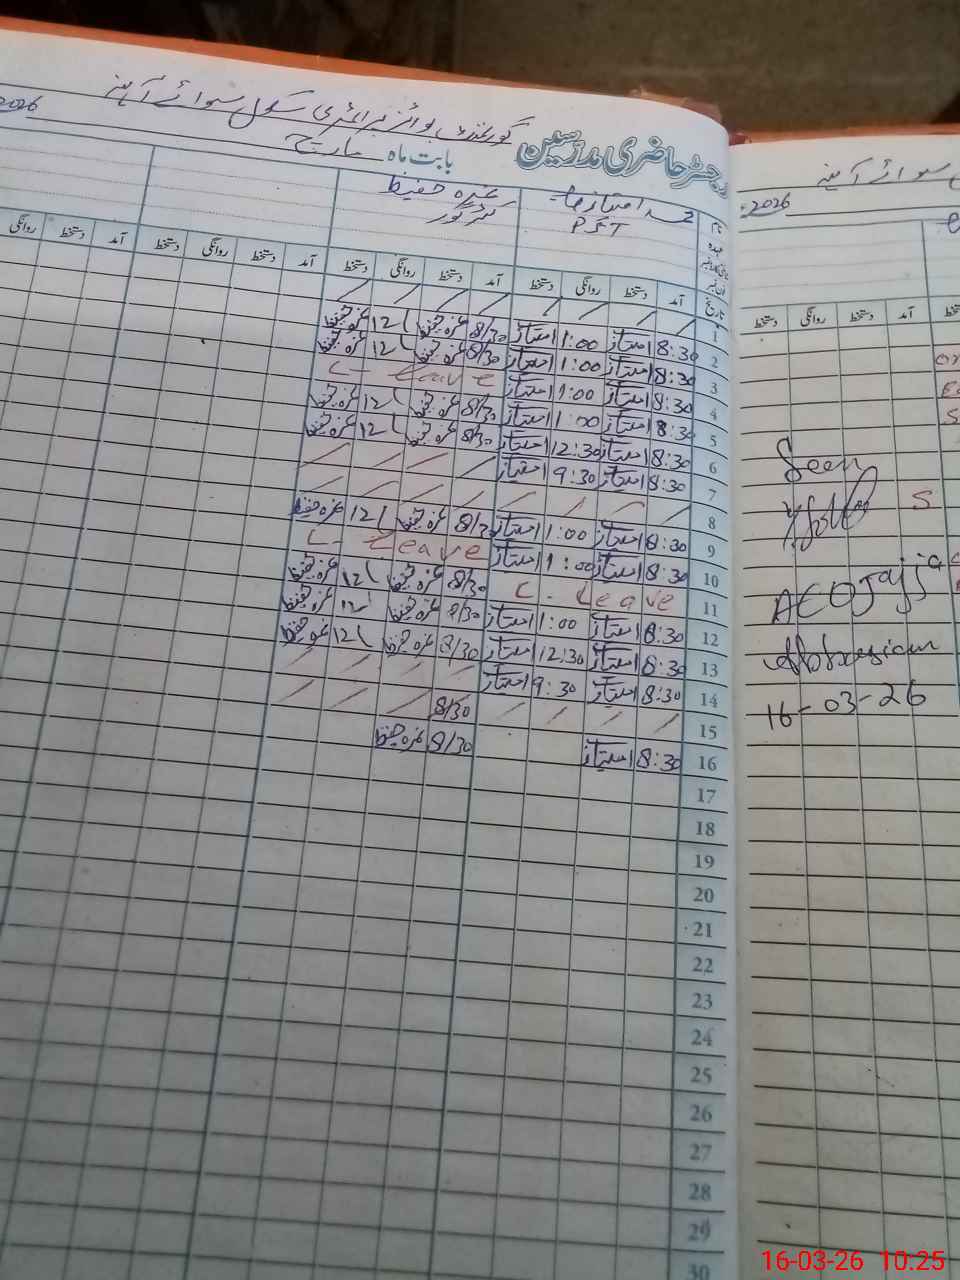 رجسٹر حاضری مدرسین گورنمنٹ بوائز پرائمری سکول
بابت ماہ مارچ 2026
نام محمد امتیاز عزہ حفیظ
عہدہ PST
تاریخ آمد دستخط روانگی دستخط آمد دستخط روانگی دستخط آمد دستخط روانگی دستخط آمد دستخط روانگی
1 / / / / / / / /
2 8:30 امتیاز 1:00 امتیاز 8/30 عزہ حفیظ 12/ عزہ حفیظ
3 8:30 امتیاز 1:00 امتیاز 8/30 عزہ حفیظ 12/ عزہ حفیظ
4 8:30 امتیاز 1:00 امتیاز C- Leave
5 8:30 امتیاز 1:00 امتیاز 8/30 عزہ حفیظ 12/ عزہ حفیظ
6 8:30 امتیاز 12:30 امتیاز 8/30 عزہ حفیظ 12/ عزہ حفیظ
7 8:30 امتیاز 9:30 امتیاز / / / /
8 / / / / / / / /
9 8:30 امتیاز 1:00 امتیاز 8/3 عزہ حفیظ 12/ عزہ حفیظ
10 8:30 امتیاز 1:00 امتیاز C- Leave
11 C- Leave 8/30 عزہ حفیظ 12/ عزہ حفیظ
12 8:30 امتیاز 1:00 امتیاز 8/30 عزہ حفیظ 12/ عزہ حفیظ
13 8:30 امتیاز 12:30 امتیاز 8/30 عزہ حفیظ 12/ عزہ حفیظ
14 8:30 امتیاز 9:30 امتیاز / / / /
15 / / / / 8/30 / / /
16 8:30 امتیاز 8/30 عزہ حفیظ
17
18
19
20
21
22
23
24
25
26
27
28
29
30
2026
آمد دستخط روانگی دستخط
Seen
AEO Jajja
Abbasian
16-03-26
16-03-26 10.25